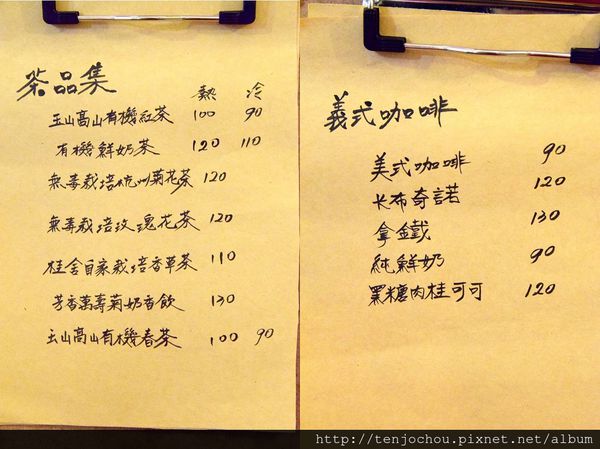 茶品集
熱 冷
玉山高山有機紅茶 100 90
有機鮮奶茶 120 110
無毒栽培杭州菊花茶 120
無毒栽培玫瑰花茶 120
桂舍自家栽培香草茶 110
芳香萬壽菊奶香飲 130
玉山高山有機春茶 100 90
義式咖啡
美式咖啡 90
卡布奇諾 120
拿鐵 130
純鮮奶 90
黑糖肉桂可可 120
http://tenjochou.pixnet.net/album